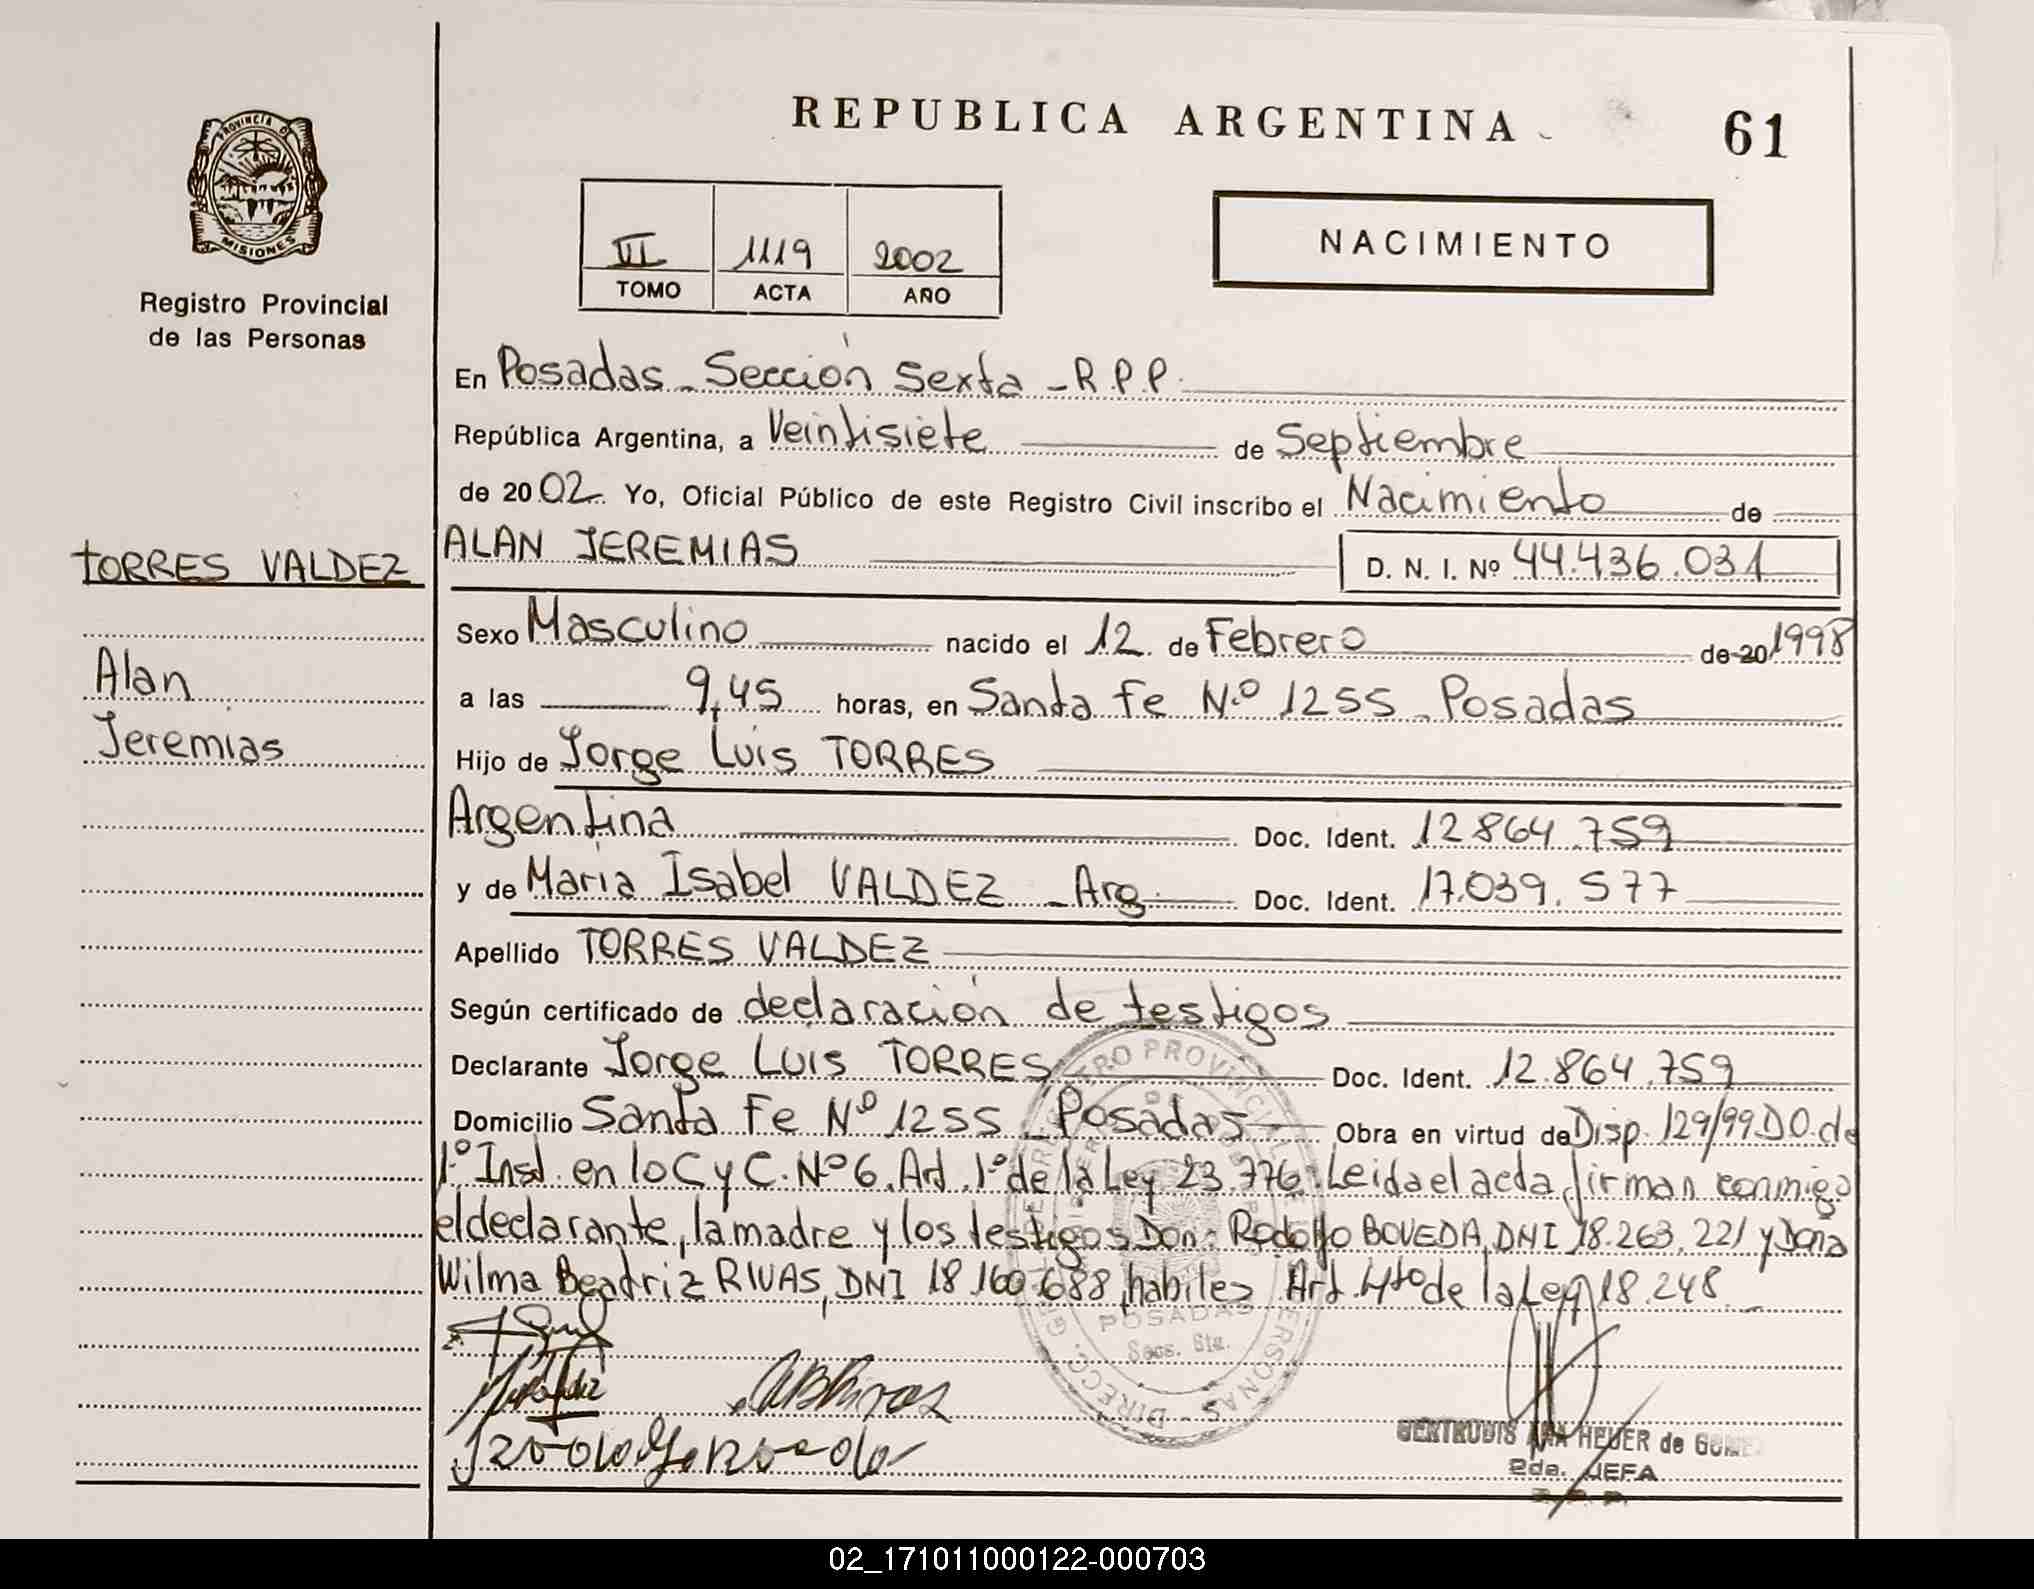 REPUBLICA ARGENTINA
61
PROVINCIA DE
MISIONES
Registro Provincial
de las Personas
VI 1119 2002
TOMO ACTA AÑO
NACIMIENTO
En Posadas - Sección Sexta - R.P.P.
República Argentina, a Veintisiete de Septiembre
de 2002. Yo, Oficial Público de este Registro Civil inscribo el Nacimiento de
TORRES VALDEZ
ALAN JEREMIAS D. N. I. Nº 44.436.031
Sexo Masculino nacido el 12 de Febrero de 20 1998
Alan
a las 9,45 horas, en Santa Fe N.º 1255 - Posadas
Jeremias
Hijo de Jorge Luis TORRES
Argentina Doc. Ident. 12.864.759
y de Maria Isabel VALDEZ - Arg. Doc. Ident. 17.039.577
Apellido TORRES VALDEZ
Según certificado de declaración de testigos
Declarante Jorge Luis TORRES Doc. Ident. 12.864.759
Domicilio Santa Fe Nº 1255 - Posadas - Obra en virtud de Disp. 129/99 D.O. de
1º Inst. en lo C y C. Nº 6. Art. 1º de la Ley 23.776. Leida el acta, firman conmigo
el declarante, la madre y los testigos Don: Rodolfo BOVEDA, DNI 18.263.221 y Doña
Wilma Beatriz RIVAS, DNI 18.160.688, habiles Art. 4to de la Ley 18.248
POSADAS
Secc. 6ta.
GERTRUDIS ANA HEUER de GOMEZ
2da. JEFA
R. P. P.
02_171011000122-000703